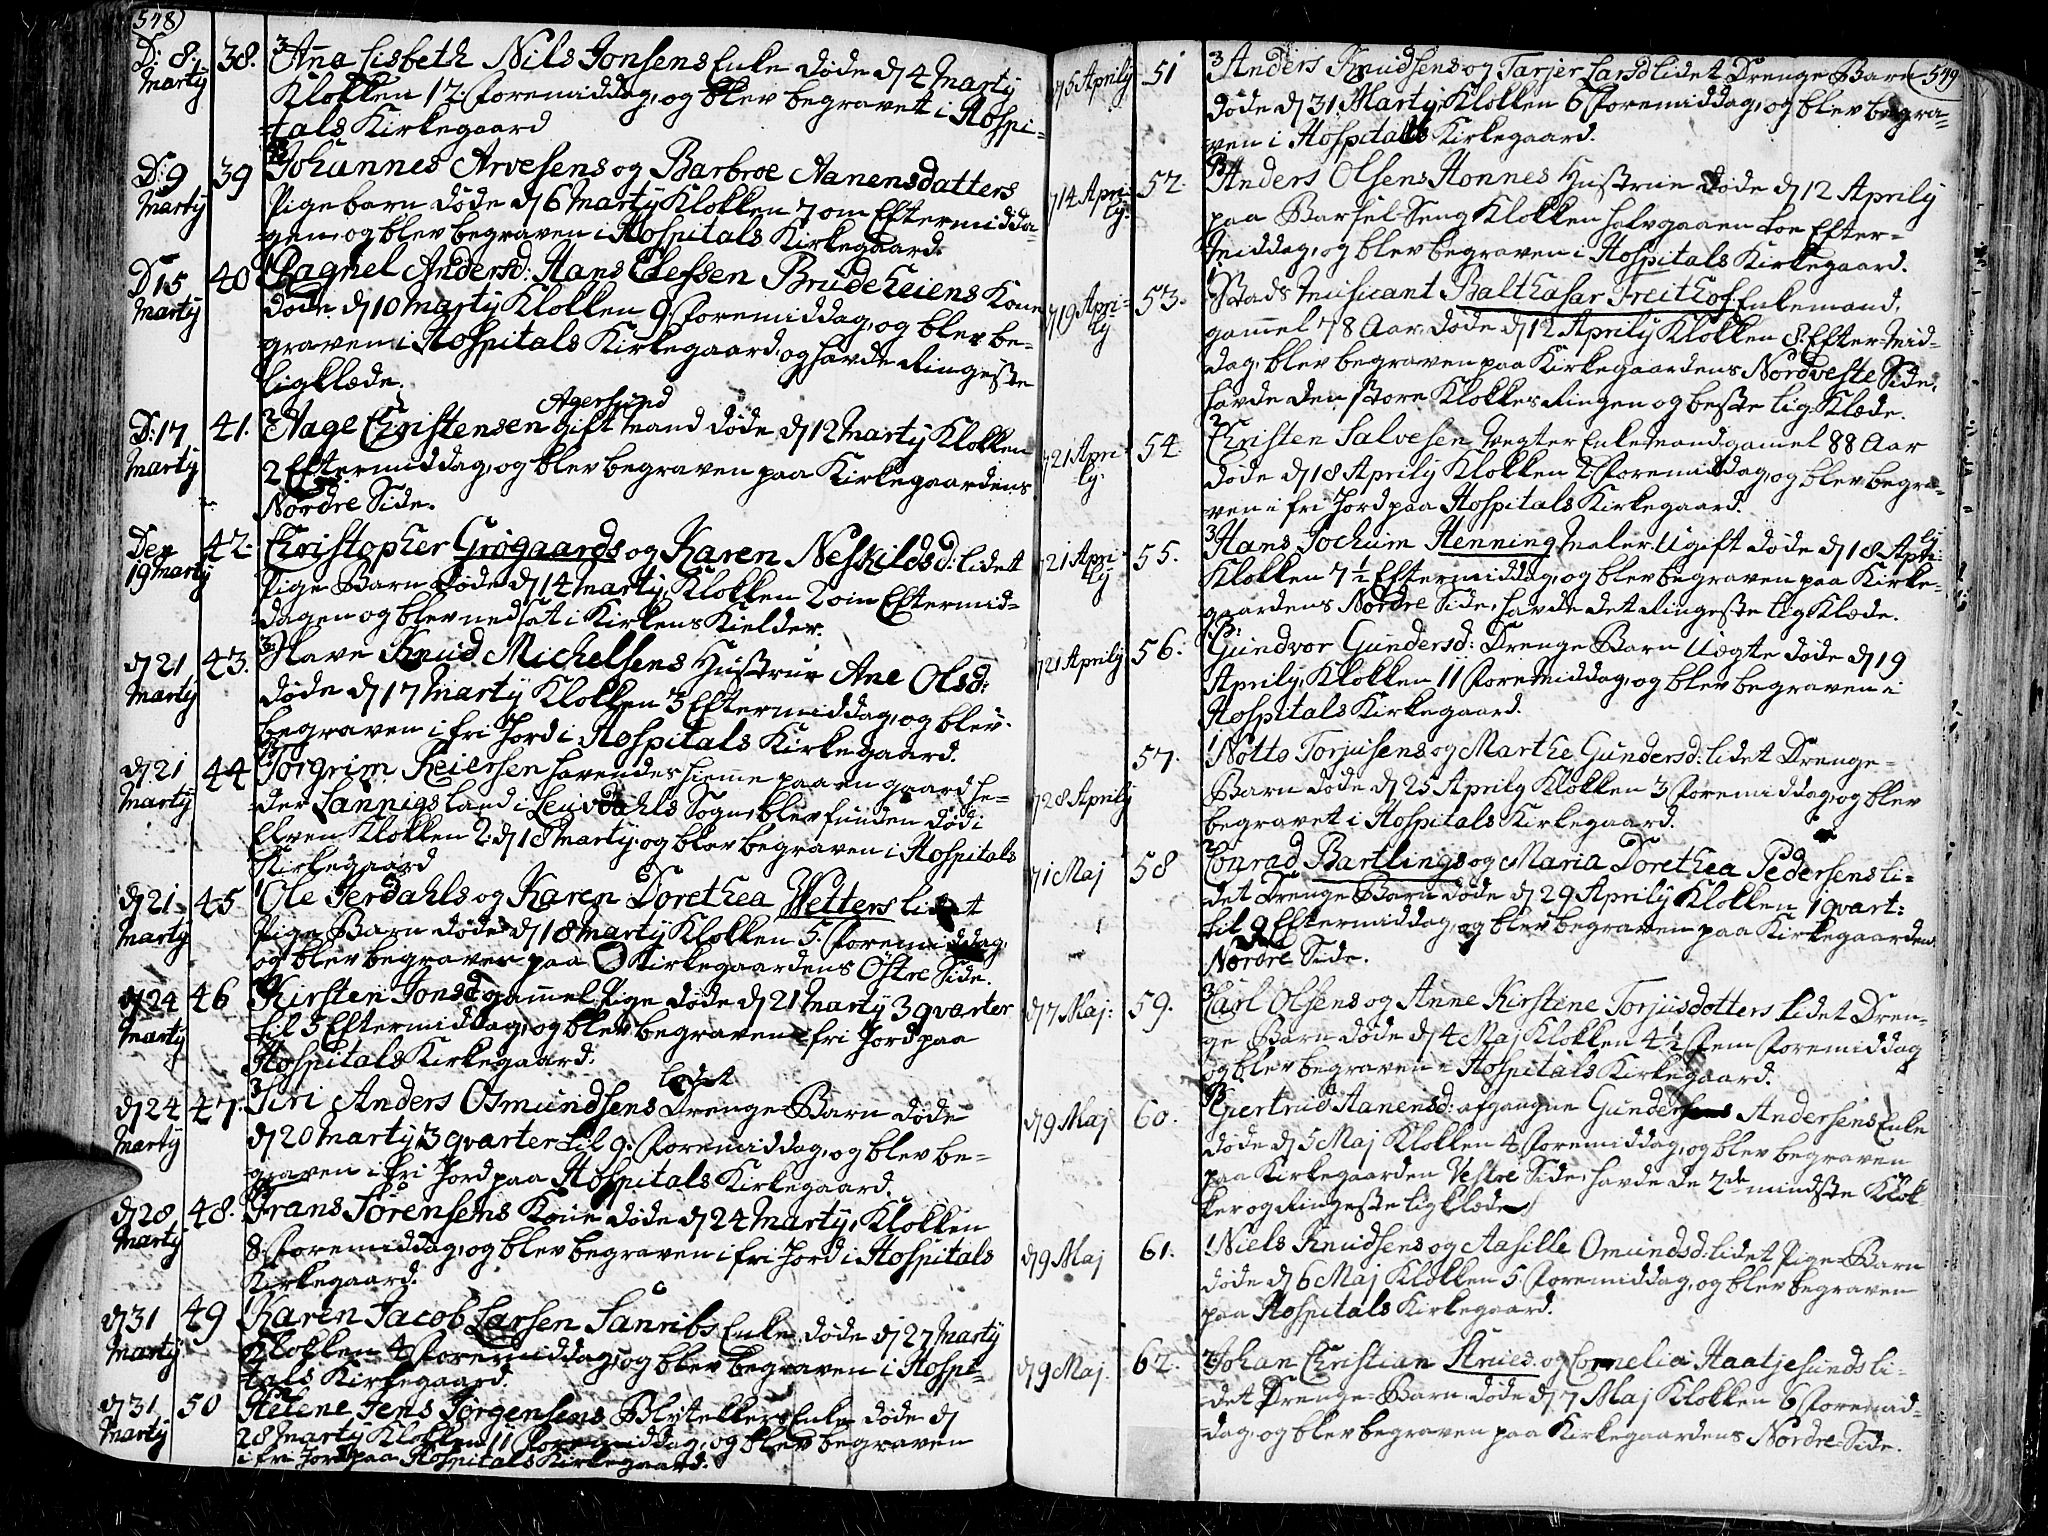 548)
D: 8. Marty 38. Aña Lisbeth Nils Jonsens Enke døde d 4 Marty
Klokken 12 Formiddag, og blev begravet i Hospi-
tals Kirkegaard
D: 9 Marty 39 Johannes Arvesens og Barbroe Aanensdatters
Pigebarn døde d 6 Marty Klokken 7 om Eftermidda-
gen, og blev begraven i Hospitals Kirkegaard.
D 15 Marty 40 Ragnel Andersd: Hans Elefsen Brudeheiens Kone
døde d 10 Marty Klokken 9. Formiddag, og blev be-
graven i Hospitals Kirkegaard, og havde Ringeste
Ligklæde.
Agersund
D: 17 Marty 41. Aage Christensen Gift Mand døde d 12 Marty Klokken
2 Eftermiddag, og blev begraven paa Kirkegaardens
Nordre Side.
Den 19 Marty 42. Christopher Grøgaards og Karen Neskildsd: lidet
Pige Barn døde d 14 Marty, Klokken 2 om Eftermid-
dagen og blev nedsat i Kirkens Kielder.
d 21 Marty 43. Slave Knud Michelsens Hustrue Ane Olsd:
døde d 17 Marty Klokken 3 Eftermiddag, og blev
begraven i fri Jord i Hospitals Kirkegaard.
d 21 Marty 44 Torgrim Reiersen havendes hieme paa en gaard he-
der Lannigs land i Leivdahls Sogn blev funden død i
Elven Klokken 2. d 18 Marty. og blev begraven i Hospitals
Kirkegaard
d 21 Marty 45 Ole Terdahls og Karen Dorethea Wetters lidet
Pige Barn døde d 18 Marty Klokken 5. Formiddag,
og blev begraven paa Kirkegaardens Østre Side.
d 24 Marty 46 Kirsten Jonsd gamel Pige døde d 21 Marty 3 qvarter
til 3 Eftermiddag, og blev begraven i fri Jord paa
Hospitals Kirkegaard.
lidet
d 24 Marty 47. Siri Anders Osmundsens Drenge-Barn døde
d 20 Marty, 3 qvarter til 9. Formiddag, og blev be-
graven i fri Jord paa Hospitals Kirkegaard.
d 28 Marty 48. Frans Sørensens Kone døde d 24 Marty, Klokken
8. Formiddag, og blev begraven i fri Jord i Hospitals
Kirkegaard.
d 31 Marty 49 Karen Jacob Larsen Sanribs Enke, døde d 27 Marty
Klokken 4 Formiddag, og blev begraven i Hospi-
tals Kirkegaard.
d 31 Marty 50 Helene Jens Jørgensens Enke døde d
28 Marty Klokken 11 Formiddag, og blev begraven
i fri Jord paa Hospitals Kirkegaard.
549
5 Aprily 51 Anders Knudsens og Tarjer Larsd lidet Drenge Barn
døde d 31 Marty, Klokken 6 Formiddag, og blev begra-
ven i Hospitals Kirkegaard.
14 Apri-ly. 52. Anders Olsens Honnes Hustrue døde d 12 Aprily
paa Barsel-Seng Klokken halvgaaen toe Efter-
Middag, og blev begraven i Hospitals Kirkegaard.
d 19 Apri-ly 53. Stads Musicant Balthasar Freithof. Enkemand,
gamel 78 Aar, døde d 12 Aprily Klokken 8. Efter-Mid-
dag, blev begraven paa Kirkegaardens Nordveste Side,
havde den store Klokkes Ringen og beste Lig Klæde.
21 Apri-ly. 54 Christen Salvesen Vægter Enkemand, gamel 88 Aar
døde d 18 Aprily Klokken 2. Formiddag, og blev begra-
ven i fri Jord paa Hospitals Kirkegaard.
21 Apri-ly 55. Hans Jochum Henning Maler Ugift døde d 18 Aprily
Klokken 7½ Eftermiddag, og blev begraven paa Kirke-
gaardens Nordre Side, havde det Ringeste Lig Klæde.
21 Aprily 56. Gundvor Gundersd: Drenge Barn Uægte døde d 19
Aprily, Klokken 11 Formiddag, og blev begraven i
Hospitals Kirkegaard.
28 Aprily 57. Notto Torjusens og Marthe Gundersd: lidet Drenge-
Barn døde d 25 Aprily Klokken 3 Formiddag, og blev
begravet i Hospitals Kirkegaard.
1 Maj 58 Conrad Bartlings og Maria Dorethea Pedersens li-
det Drenge Barn døde d 29 Aprily Klokken 1 qvart:
til 9 Eftermiddag, og blev begraven paa Kirkegaardens
Nordre Side.
d 7 Maj: 59. Carl Olsens og Anne Kirstine Torjusdotters lidet Dren-
ge Barn døde d 4 Maj Klokken 4½ Fem Formiddag
og blev begraven i Hospitals Kirkegaard.
d 9 Maj 60. Giertrud Aanensd: afgangne Gunder Andersens Enke
døde d 5 Maj Klokken 4 Formiddag, og blev begraven
paa Kirkegaarden Vestre Side, havde de 2de mindste Klok-
ker og Ringeste Ligklæde
d 9 Maj 61. Niels Knudsens og Aasille Omundsd: lidet Pige-Barn
døde d 6 Maj Klokken 5. Formiddag, og blev begraven
paa Hospitals Kirkegaard.
d 9 Maj. 62. Johan Christian og Cornelia Haatjesunds li-
det Drenge-Barn døde d 7 Maj Klokken 6 Formid-
dag, og blev begraven paa Kirkegaardens Nordre Side.